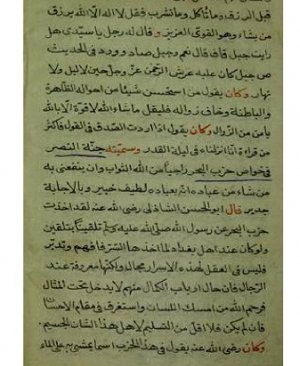 قبل الرزق ده ما تأكل وما تشرب فقل لا اله الا الله يرزق
من يشاء وهو القوى العزيز وقال له رجل يا سيدى هل
رايت جبل قاف قال نعم وجبل صاد وورد فى الحديث
ص جبل كان عليه عرش الرحمن عز وجل حين لا ليل ولا
نهار وكان يقول من استحسن شيئا من احواله الظاهرة
والباطنة وخاف زواله فليقل ما شاء الله لا قوة الا بالله
يأمن من الزوال وكان يقول اذا اردت الصدق فى القول فأكثر
من قراءة انا انزلناه فى ليلة القدر وسميته جنة النصر
فى خواص حزب البحر راجيا من الله الثواب وان ينتفعنى به
من شاء من عباده انه بعباده لطيف خبير وبالاجابة
جدير قال ابو الحسن الشاذلى رضى الله عنه لقد اخذت
حزب البحر عن رسول الله صلى الله عليه وسلم تلقينا بتلقين
ولو كان عند اهل بغداد لما اخذها التتر فافهم وتدبر
فليس فى العقل لهذه الاسرار مجال ولكنها معروفة عند
الرجال فان حال ارباب الكمال منهم لا يدخل تحت المثال
فرحم الله من امسك اللسان واستغرق فى مقام الاحسان
فان لم يكن فلا اقل من التسليم لاهل هذا الشان الجسيم
وكان رضى الله عنه يقول فى هذا الحزب اسما يمشى به على الماء